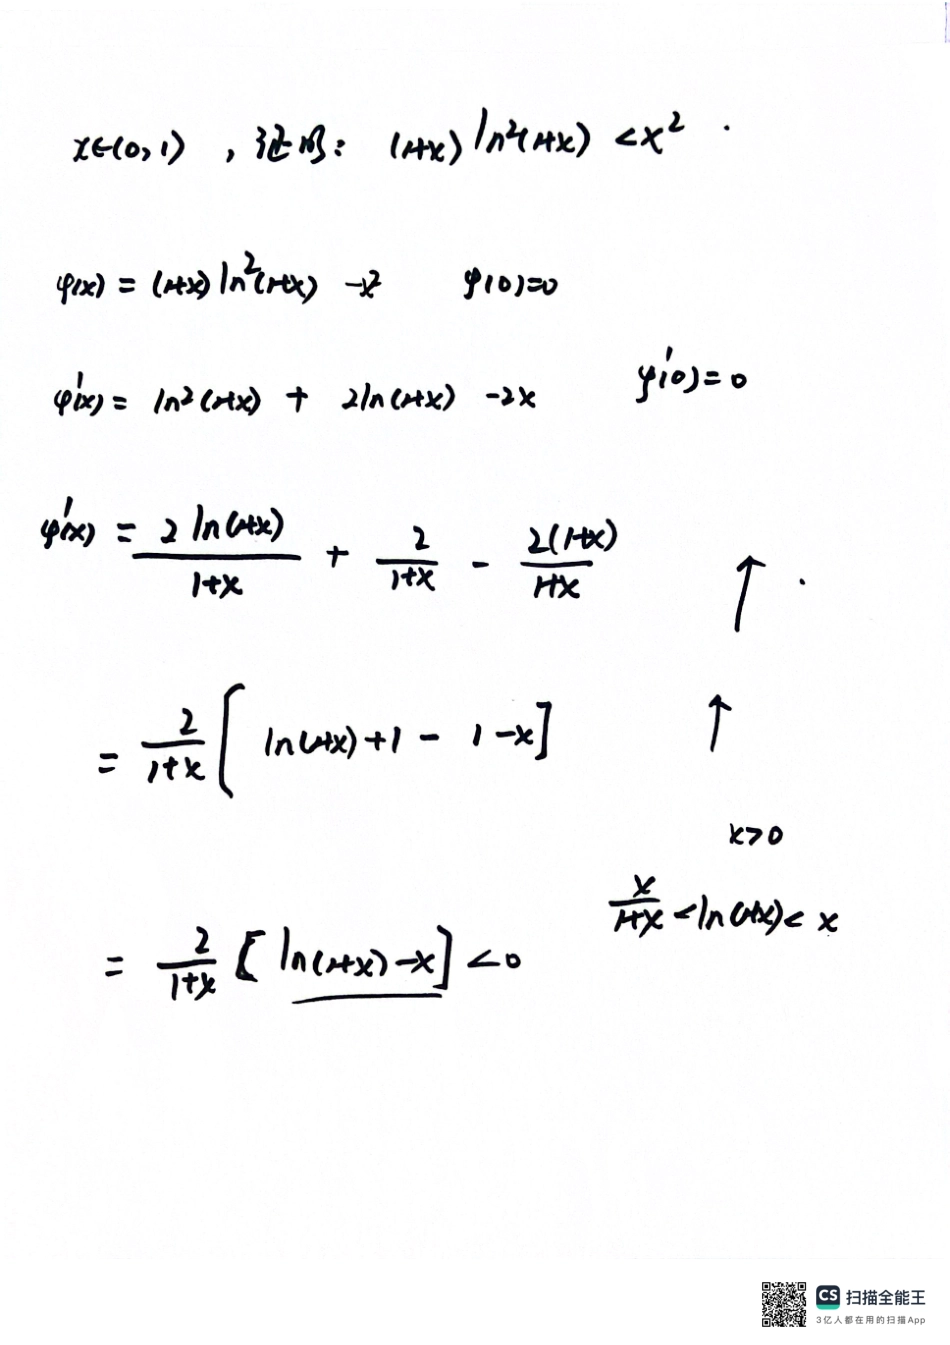 x∈(0,1) , 证明: (1+x) ln²(1+x) <x² .
φ(x) = (1+x) ln²(1+x) -x² φ(0)=0
φ'(x) = ln²(1+x) + 2ln(1+x) -2x φ'(0)=0
φ'(x) = 2 ln(1+x)/1+x + 2/1+x - 2(1+x)/1+x ↑ .
= 2/1+x [ ln(1+x)+1 - 1-x] ↑
x>0
x/1+x <ln(1+x)< x
= 2/1+x [ ln(1+x)-x] <0
CS 扫描全能王
3亿人都在用的扫描App